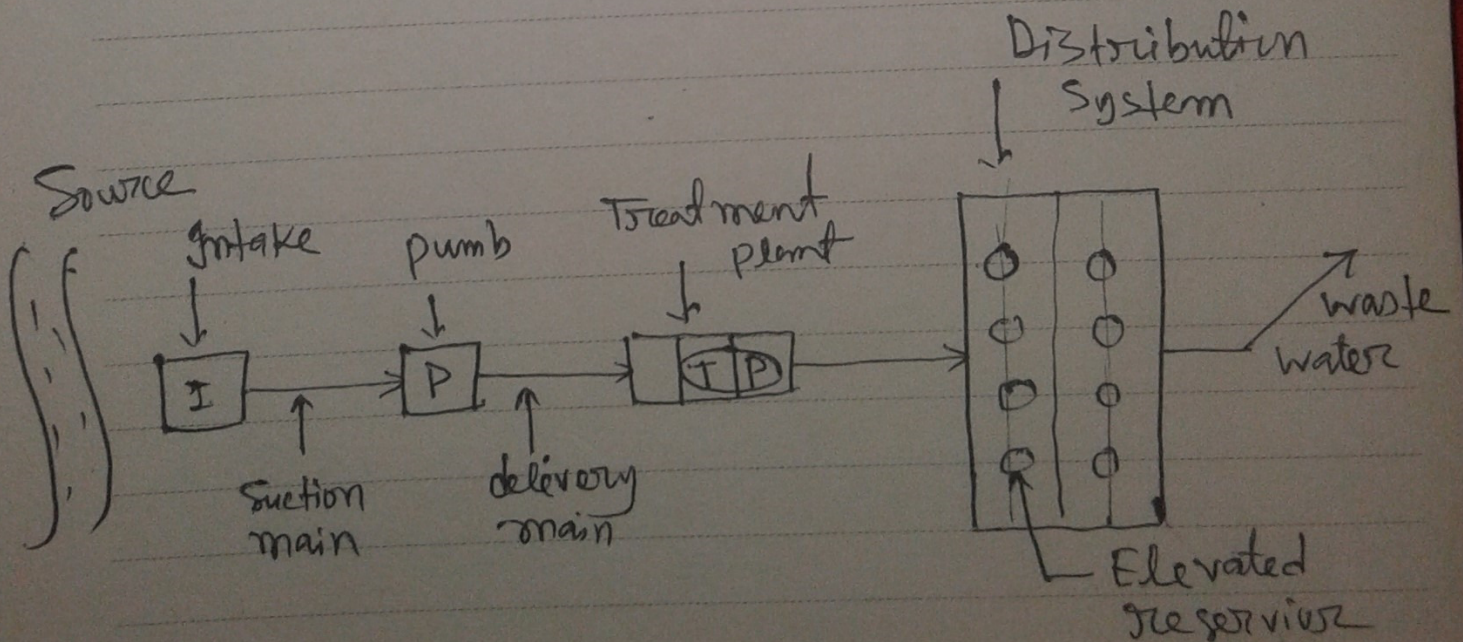 Distribution
System
Source
Intake
pumb
Treatment
plant
I
P
T P
waste
water
suction
main
delivery
main
Elevated
reservior